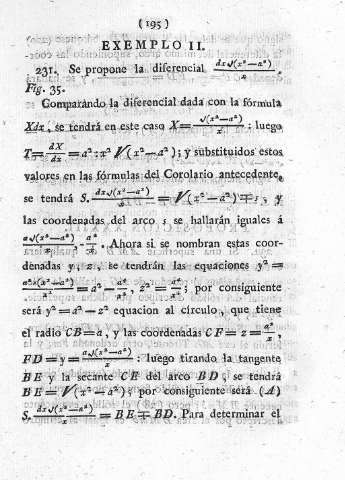 ( 195 )
EXEMPLO II.
231. Se propone la diferencial dx√(x²−a²)/x.
Fig. 35.
Comparándo la diferencial dada con la fórmula
Xdx, se tendrá en este caso X=√(x²−a²)/x; luego
T=dX/dx=a²:x²√(x²−a²); y substituidos estos
valores en las fórmulas del Corolario antecedente,
se tendrá S.dx√(x²−a²)/x=√(x²−a²)∓s, y
las coordenadas del arco s se hallarán iguales á
a√(x²−a²)/x, a²/x. Ahora si se nombran estas coor-
denadas y, z, se tendrán las equaciones y²=
a²(x²−a²)/x²=a²−a⁴/x², z²=a⁴/x²; por consiguiente
será y²=a²−z² equacion al círculo, que tiene
el radio CB=a, y las coordenadas CF=z=a²/x,
FD=y=a√(x²−a²)/x: luego tirando la tangente
BE y la secante CE del arco BD, se tendrá
BE=√(x²−a²); por consiguiente será (A)
S.dx√(x²−a²)/x=BE∓BD. Para determinar el